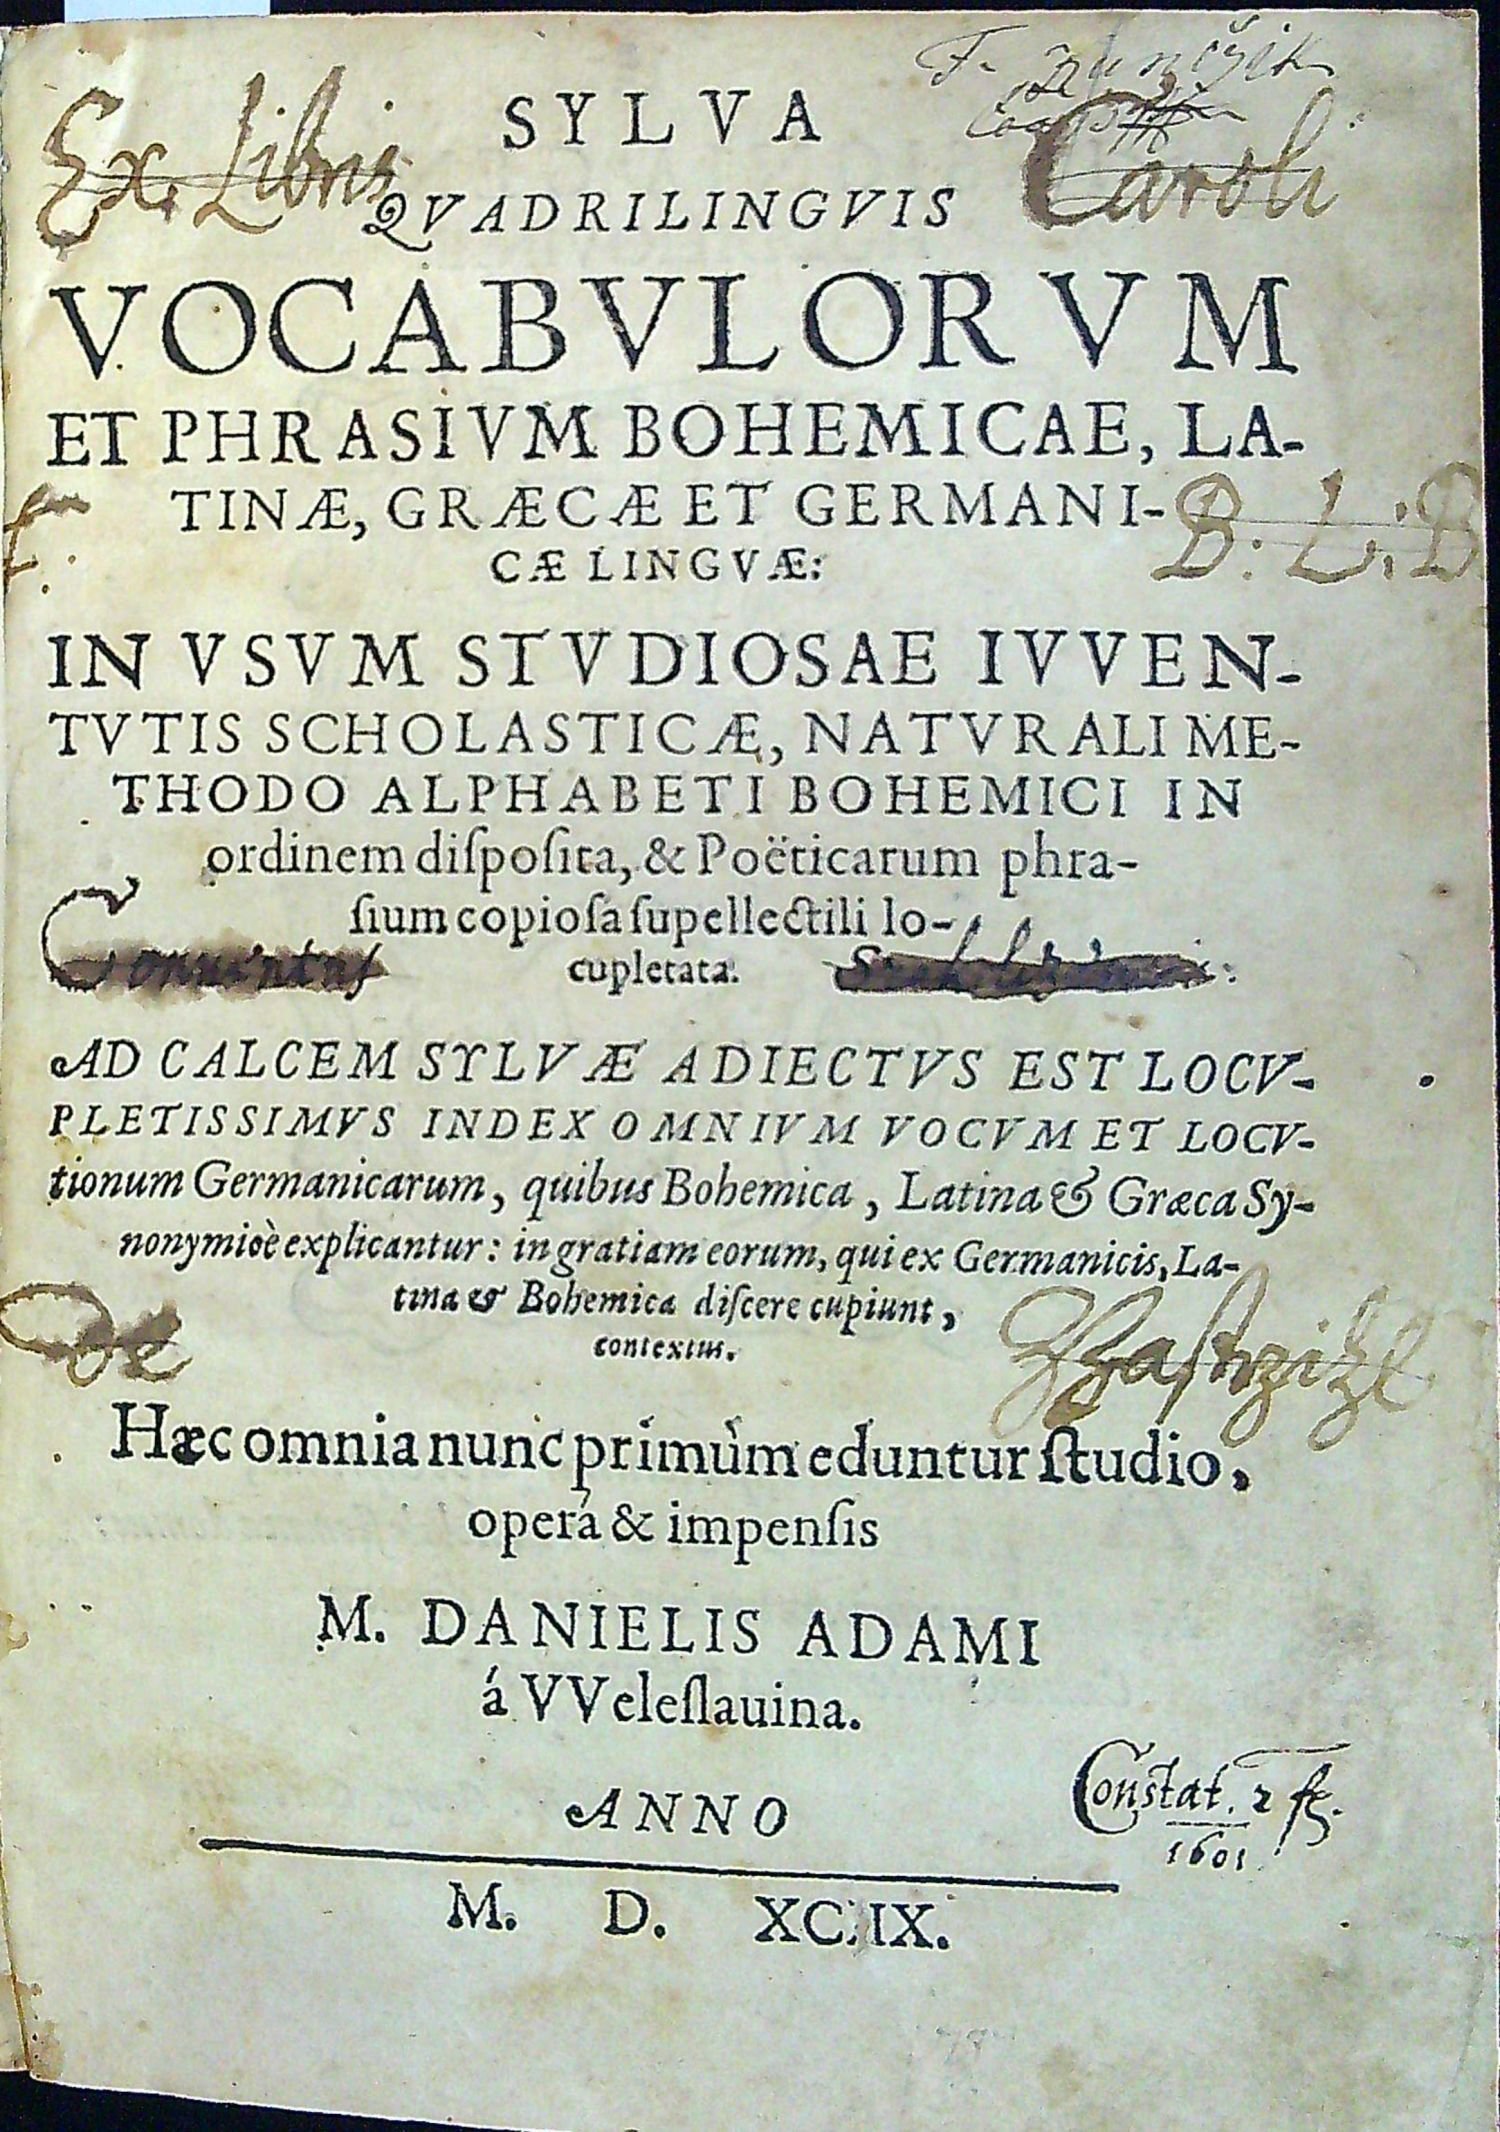 Ex Libris
Caroli
SYLVA
QVADRILINGVIS
VOCABVLORVM
ET PHRASIVM BOHEMICAE, LA-
TINÆ, GRÆCÆ ET GERMANI-
B: L: B
CÆ LINGVÆ:
IN VSVM STVDIOSAE IVVEN-
TVTIS SCHOLASTICÆ, NATVRALI ME-
THODO ALPHABETI BOHEMICI IN
ordinem diſpoſita, & Poëticarum phra-
ſium copioſa ſupellectili lo-
cupletata.
Conuentus
AD CALCEM SYLVÆ ADIECTVS EST LOCV-
PLETISSIMVS INDEX OMNIVM VOCVM ET LOCV-
tionum Germanicarum, quibus Bohemica, Latina & Græca Sy-
nonymiôè explicantur: in gratiam eorum, qui ex Germanicis, La-
tina & Bohemica diſcere cupiunt,
contextus.
De
Hæc omnia nunc primùm eduntur ſtudio,
operá & impenſis
M. DANIELIS ADAMI
á VVeleſlauina.
ANNO
Constat. 2 fl.
1601
M. D. XCIIX.